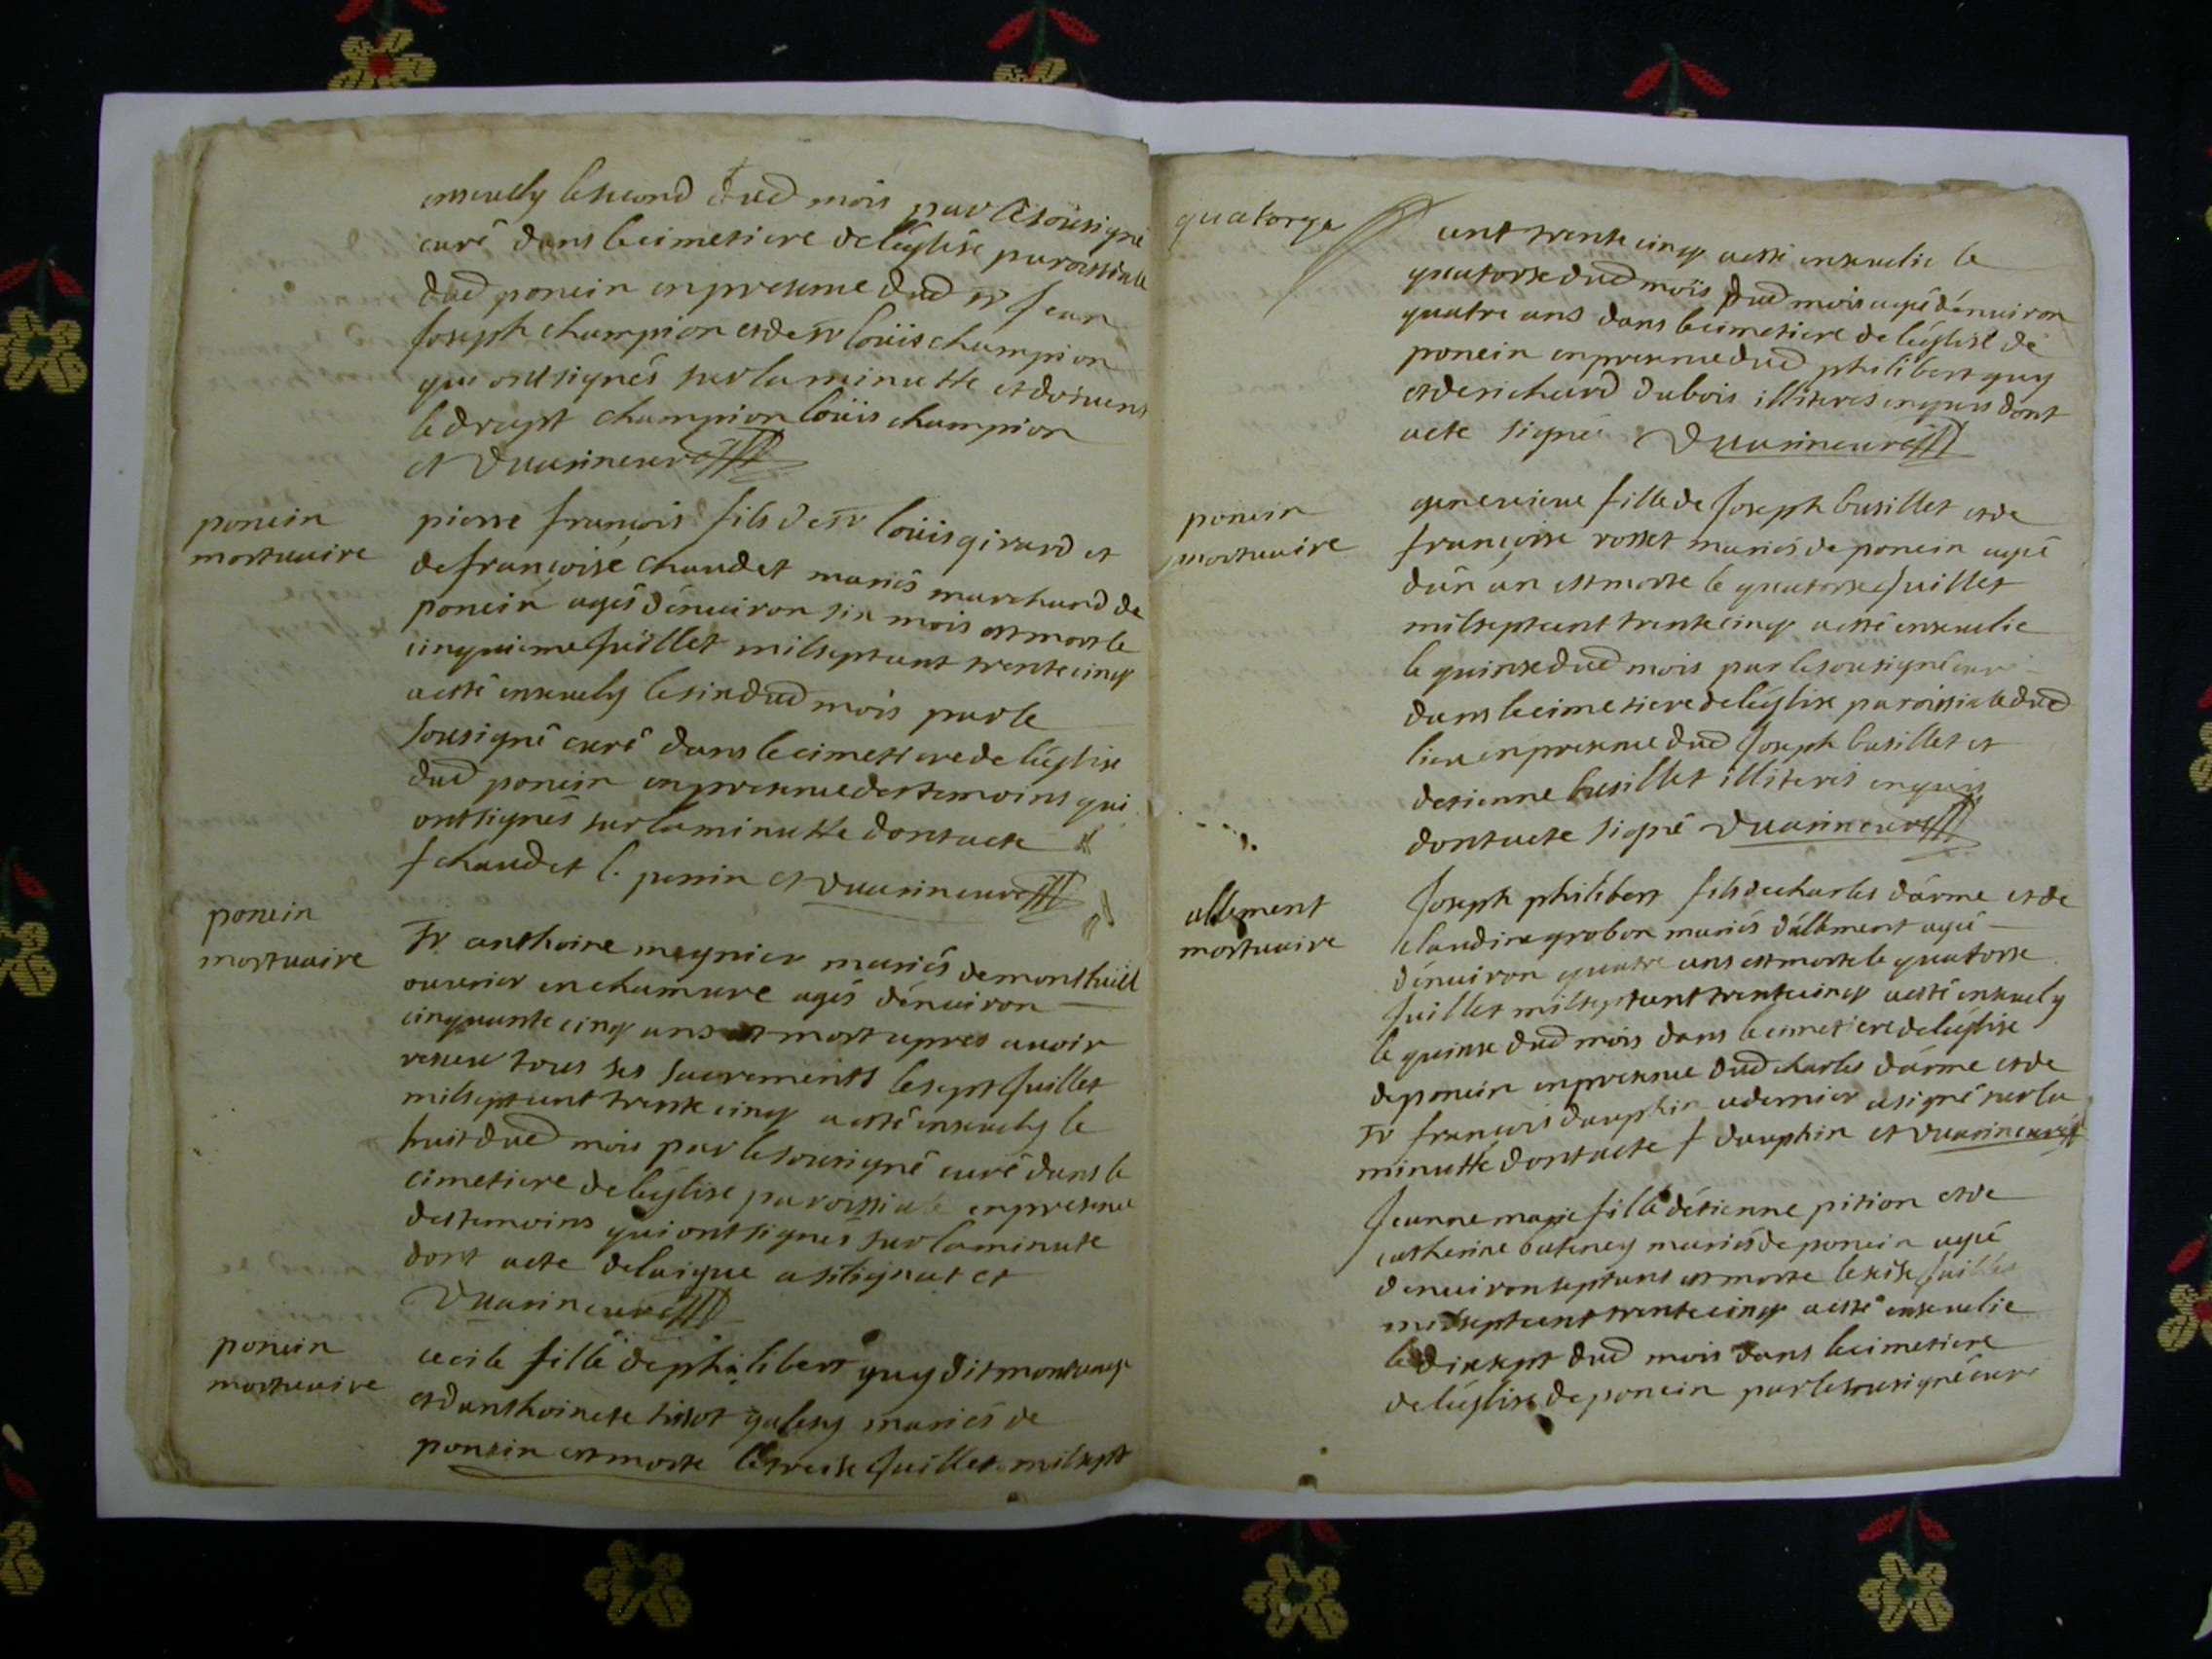 enseuely le second dud mois par le sousigné
curé dans le cimetiere de l'église paroissialle
dud poncin en presence dud sr Jean
Joseph champion et de sr loüis champion
qui ont signés sur la minutte et doivent
le drapt champion loüis champion
et Duarin curé
poncin
mortuaire
pierre francois fils de sr loüis girard et
de francoise chaudet mariés marchand de
poncin agés d'enuiron six mois est mort le
cinquieme Juillet mil sept cent trente cinq
a esté enseuely le six dud mois par le
sousigné curé dans le cimetiere de l'église
dud poncin en presence des temoins qui
ont signés sur la minutte dont acte
f chaudet l. perrin et Duarin curé
poncin
mortuaire
Sr anthoine megnier mariés de montluel
ouurier en chanure agés d'enuiron
cinquante cinq ans est mort apres auoir
receu tous ses sacrements le sept Juillet
mil sept cent trente cinq a esté enseuely le
huit dud mois par le sousigné curé dans le
cimetiere de l'église paroissiale en presence
des temoins qui ont signés sur la minute
dont acte delaigue et
Duarin curé
poncin
mortuaire
cecile fille de philibert guy dit
et d'anthoinete tissot galery mariés de
poncin est morte le treise Juillet mil sept
quatorze
cent trente cinq a esté enseuelie le
quatorse dud mois dud mois agé d'enuiron
quatre ans dans le cimetiere de l'église de
poncin en presence dud philibert guy
et de richard dubois illiterés enquis dont
acte signé Duarin curé
poncin
mortuaire
geneuieue fille de Joseph busillet et de
françoise rosset mariés de poncin agé
d'un an est morte le quatorse Juillet
mil sept cent trente cinq a esté enseuelie
le quinse dud mois par le sousigné curé
dans le cimetiere de l'église paroissiale dud
lieu en presence dud Joseph busillet et
d'etienne busillet illiterés enquis
dont acte signé Duarin curé
allement
mortuaire
Joseph philibert fils de charles d'arme et de
claudine grobon mariés d'allement agé
d'enuiron quatre ans est mort le quatorse
Juillet mil sept cent trente cinq a esté enseuely
le quinse dud mois dans le cimetiere de l'église
de poncin en presence dud charles d'arme et de
Sr francois dauphin a signé sur la
minutte dont acte f dauphin et Duarin curé
Jeanne marie fille d'etienne pition et de
catherine bateney mariés de poncin agé
d'enuiron sept ans est morte le seise Juillet
mil sept cent trente cinq a esté enseuelie
le dixsept dud mois dans le cimetiere
de l'église de poncin par le sousigné curé